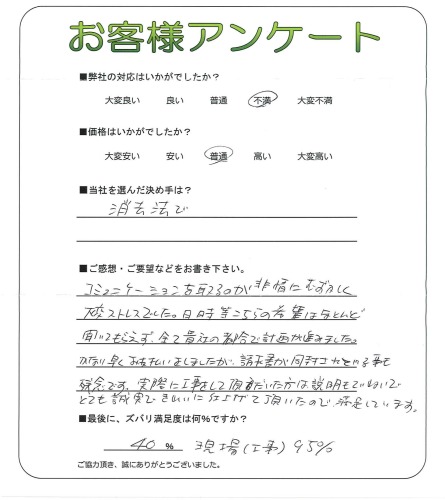 お客様アンケート
■弊社の対応はいかがでしたか？
大変良い 良い 普通 不満 大変不満
■価格はいかがでしたか？
大変安い 安い 普通 高い 大変高い
■当社を選んだ決め手は？
消去法で
■ご感想・ご要望などをお書き下さい。
コミュニケーションを取るのが非常にむずかしく
ストレスでした。日時等こちらの希望はほとんど
聞いてもらえず、全て貴社の都合で計画が進みました。
かなり早くお支払いしましたが、請求書が同封されている事も
残念です。実際に工事して頂いた方は説明もていねいで
とても誠実できれいに仕上げて頂いたので、満足しています。
■最後に、ズバリ満足度は何%ですか？
40 % 現場(工事)95%
ご協力頂き、誠にありがとうございました。